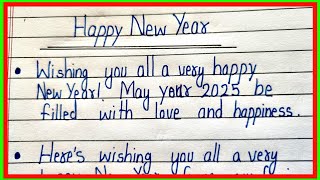 Happy New Year
• Wishing you all a very happy
New Year! May your 2025 be
filled with love and happiness.
• Here's wishing you all a very